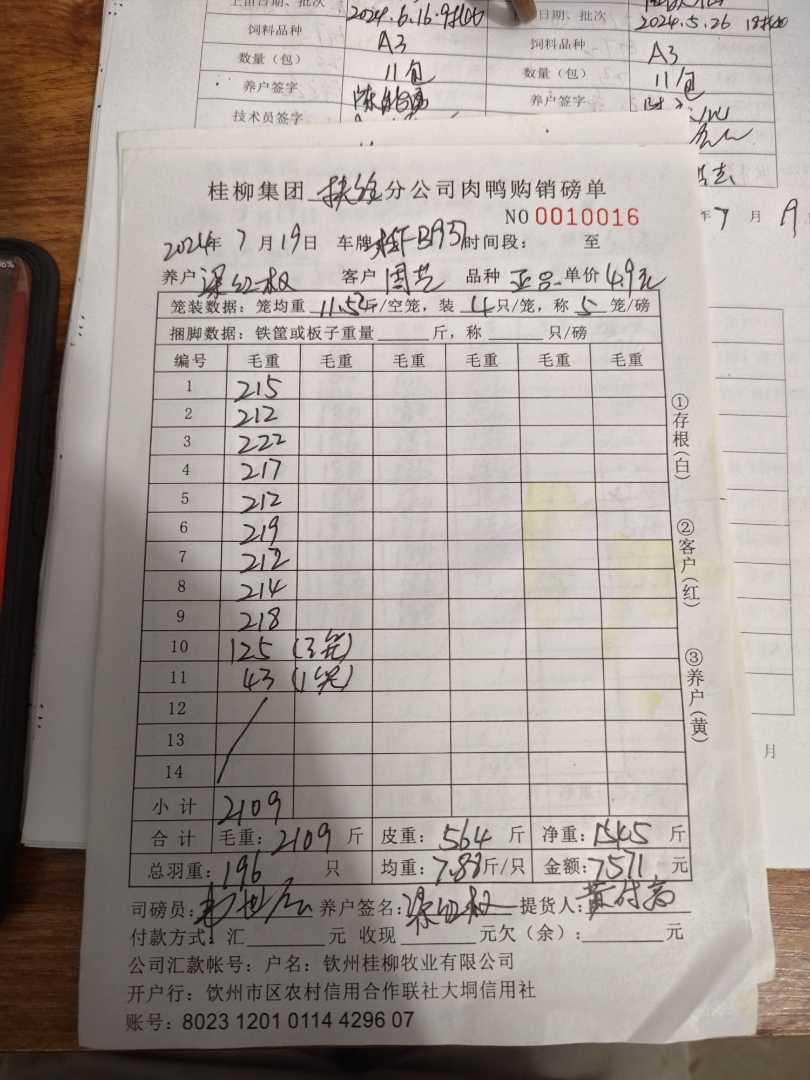 2024.6.16.9批
日期、批次
2024.5.26 18批
饲料品种
A3
饲料品种
A3
数量（包）
11包
数量（包）
11包
养户签字
养户签字
技术员签字
桂柳集团 扶绥 分公司肉鸭购销磅单
NO 0010016
2024年 7 月 19日 车牌 时间段： 至
养户 梁红权 客户 周艺 品种 单价 4.9元
笼装数据：笼均重 11.52斤/空笼，装 4 只/笼，称 5 笼/磅
捆脚数据：铁筐或板子重量 斤，称 只/磅
编号 毛重 毛重 毛重 毛重 毛重 毛重
1 215
2 212
3 222
4 217
5 212
6 219
7 212
8 214
9 218
10 125 (3笼)
11 43 (1笼)
12
13
14
小 计 2109
合 计 毛重：2109 斤 皮重：564 斤 净重：1545 斤
总羽重：196 只 均重：7.88斤/只 金额：7571 元
司磅员： 养户签名：梁红权 提货人：黄付高
付款方式：汇 元 收现 元欠（余）： 元
公司汇款帐号：户名：钦州桂柳牧业有限公司
开户行：饮州市区农村信用合作联社大垌信用社
账号：8023 1201 0114 4296 07
①存根(白)
②客户(红)
③养户(黄)
年7 月 19
月